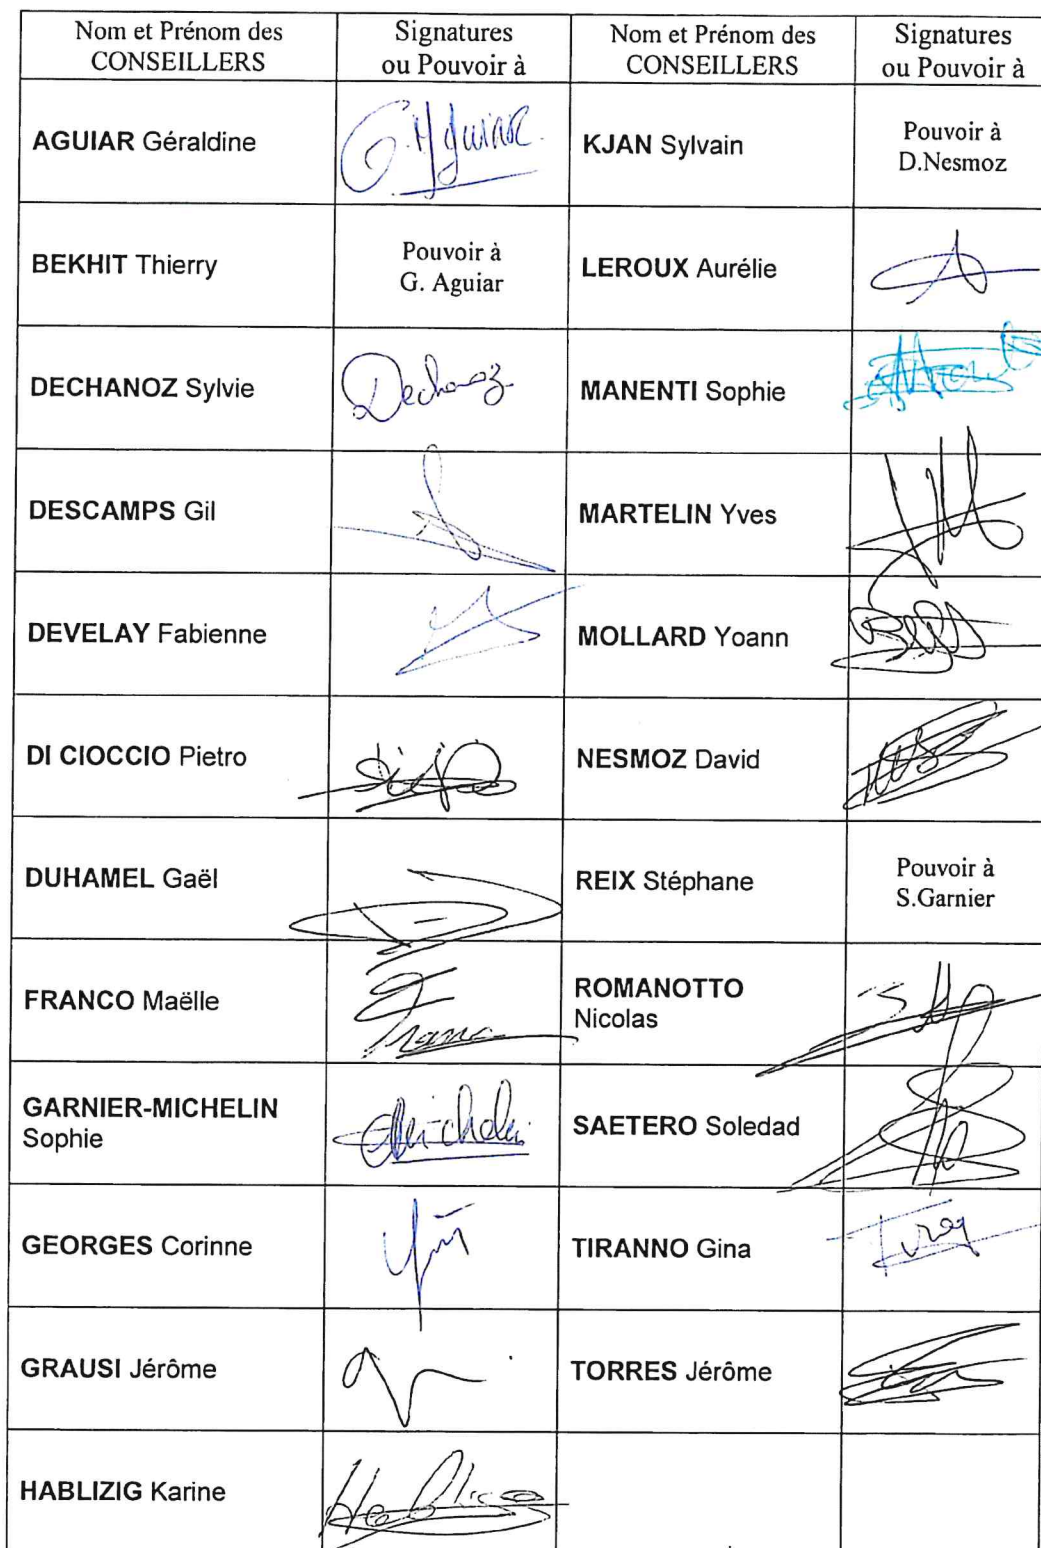 Nom et Prénom des
CONSEILLERS
Signatures
ou Pouvoir à
Nom et Prénom des
CONSEILLERS
Signatures
ou Pouvoir à
AGUIAR Géraldine
G. Aguiar
KJAN Sylvain
Pouvoir à
D.Nesmoz
BEKHIT Thierry
Pouvoir à
G. Aguiar
LEROUX Aurélie
DECHANOZ Sylvie
Dechanoz
MANENTI Sophie
DESCAMPS Gil
MARTELIN Yves
DEVELAY Fabienne
MOLLARD Yoann
DI CIOCCIO Pietro
NESMOZ David
DUHAMEL Gaël
REIX Stéphane
Pouvoir à
S.Garnier
FRANCO Maëlle
ROMANOTTO
Nicolas
GARNIER-MICHELIN
Sophie
SAETERO Soledad
GEORGES Corinne
TIRANNO Gina
GRAUSI Jérôme
TORRES Jérôme
HABLIZIG Karine